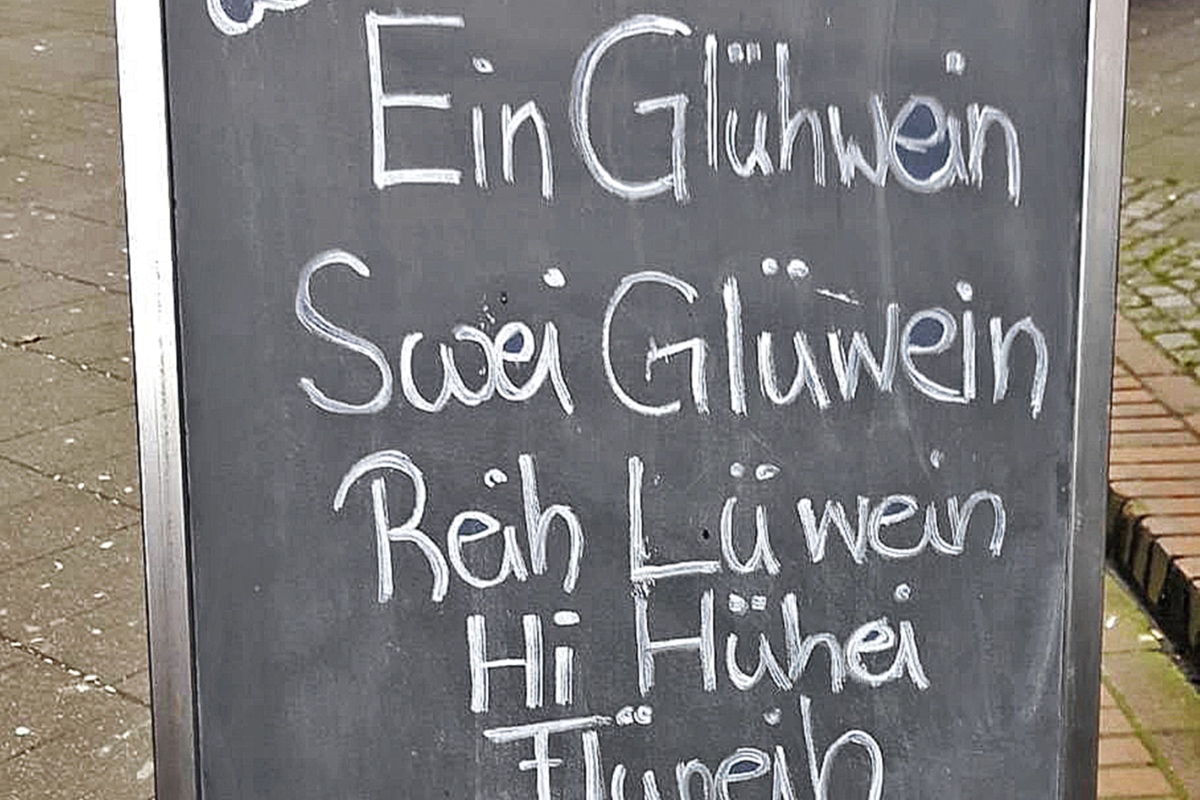 Ein Glühwein
Swei Glüwein
Reih Lüwein
Hi Hühei